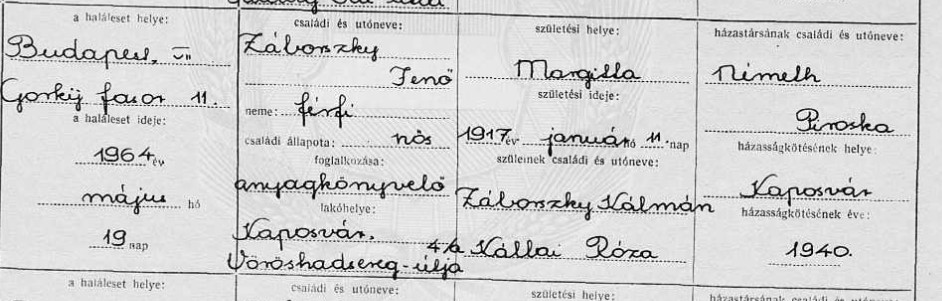 a haláleset helye:
Budapest, VII
Gorkij fasor 11.
a haláleset ideje:
1964 év
május hó
19 nap
családi és utóneve:
Záborszky
Jenő
neme: férfi
családi állapota: nős
foglalkozása:
anyagkönyvelő
lakóhelye:
Kaposvár,
Vöröshadsereg-útja 4/a
születési helye:
Margitta
születési ideje:
1917 év január 11. nap
szüleinek családi és utóneve:
Záborszky Kálmán
Kállai Róza
házastársának családi és utóneve:
Németh
Piroska
házasságkötésének helye:
Kaposvár
házasságkötésének éve:
1940.
a haláleset helye:
családi és utóneve:
születési helye:
házastársának családi és utóneve: